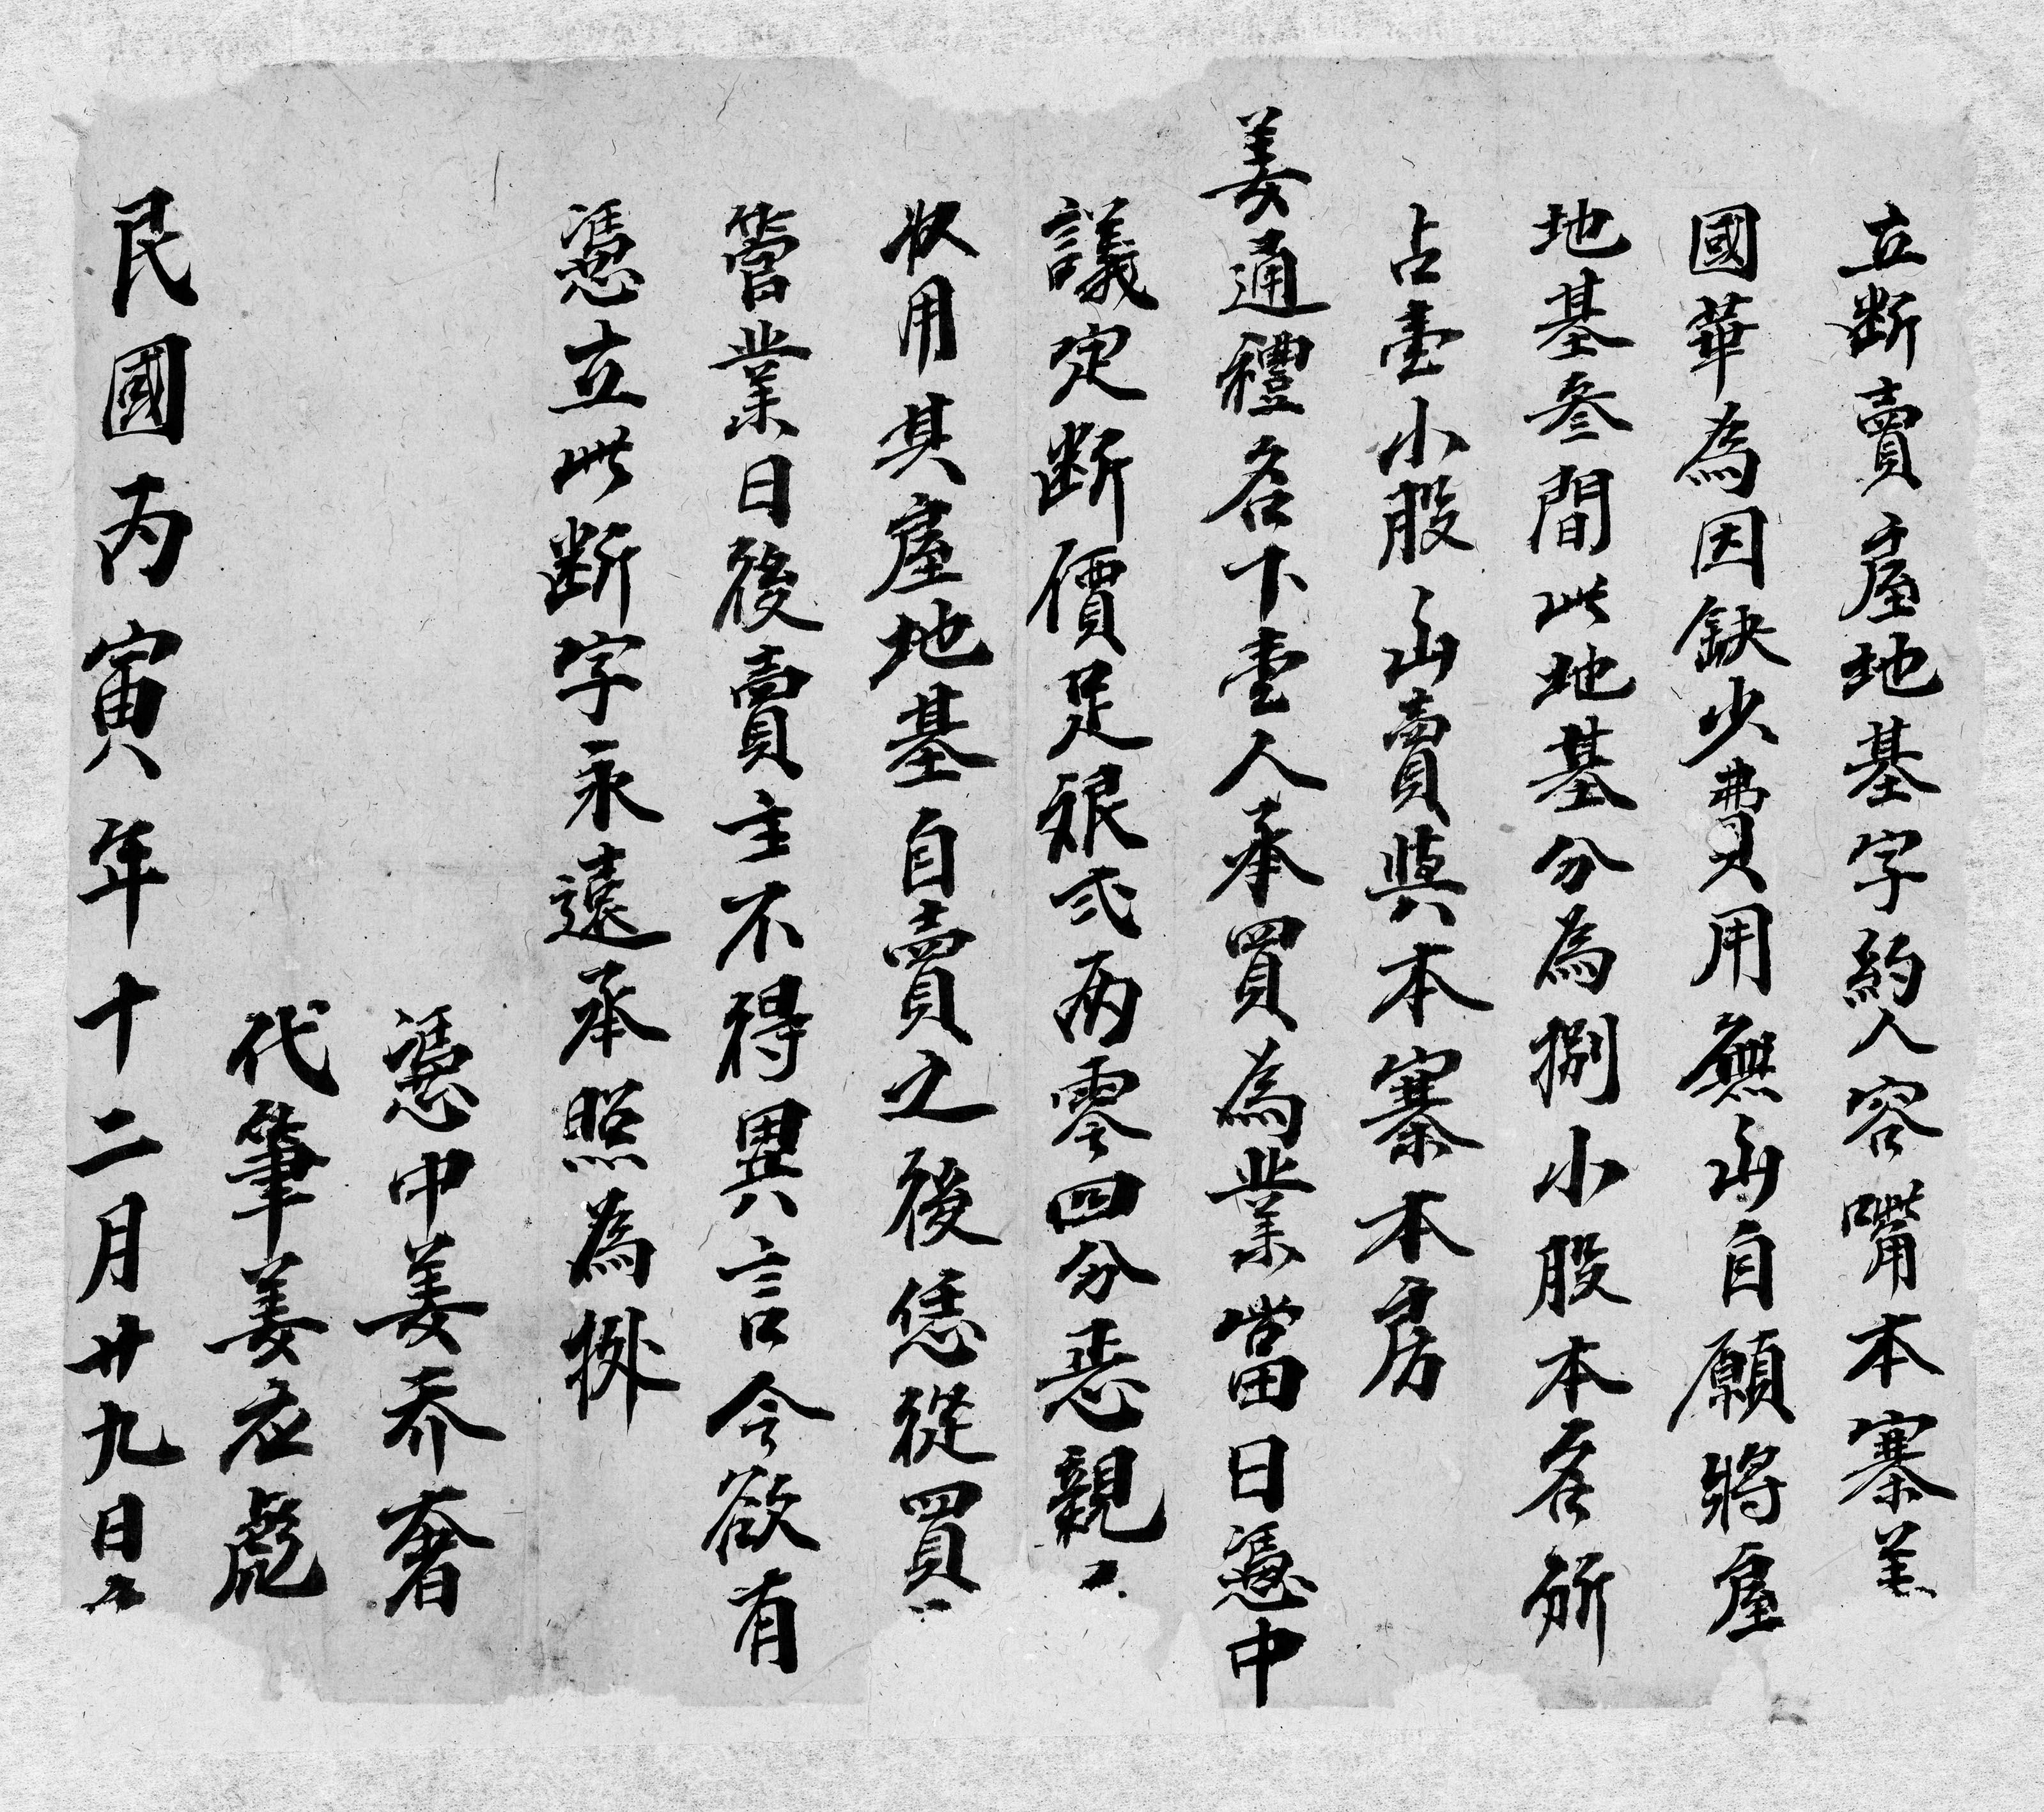 立断賣屋地基字約人容嘴本寨姜
國華為因缺少費用無出自願將屋
地基叁間此地基分為捌小股本名所
占壹小股出賣與本寨本房
姜通禮名下壹人承買為業當日憑中
議定断價足銀弍兩零四分悉親
收用其屋地基自賣之後恁從買
管業日後賣主不得異言今欲有
憑立此断字永遠承照為㨿
憑中姜乔奢
代筆姜应彪
民國丙寅年十二月廿九日